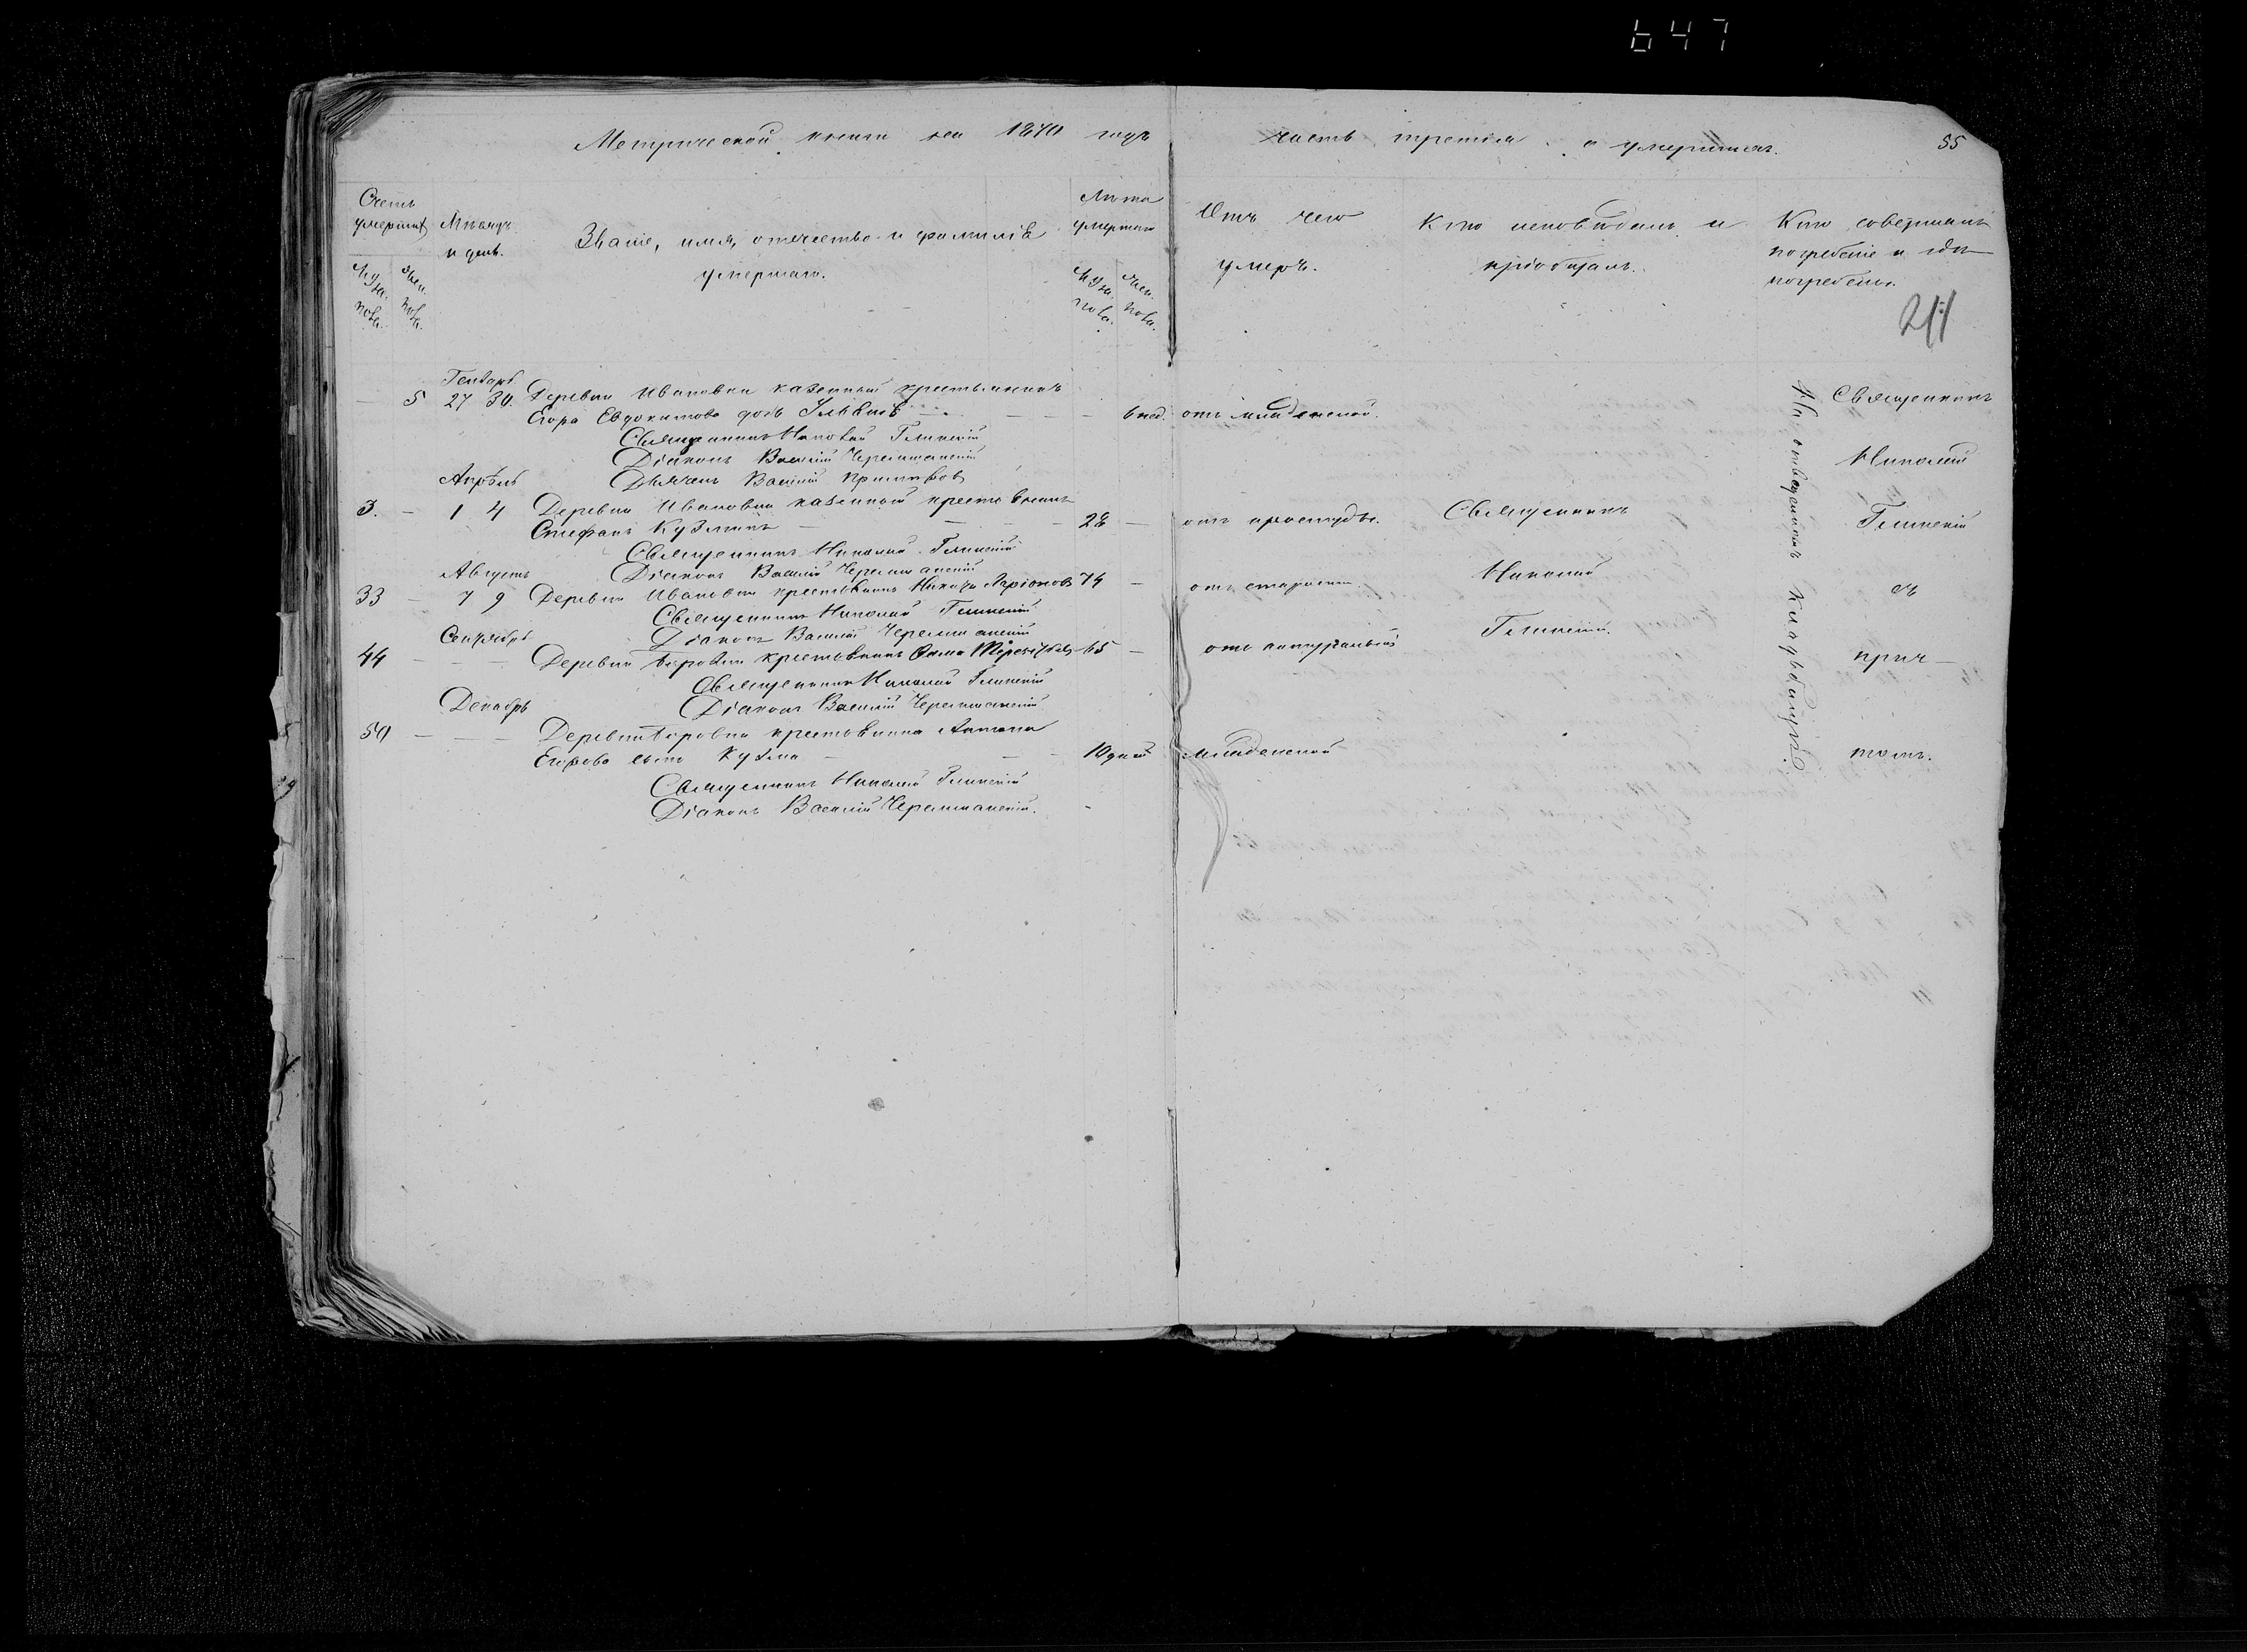 647
Метрической книги на 1870 годъ часть третія о умершихъ. 55
Счетъ умершихъ
Мѣсяцъ и день.
Званіе, имя, отчество и фамилія умершаго.
Лѣта умершаго
Отъ чего умеръ.
Кто исповѣдалъ и пріобщалъ.
Кто совершалъ погребеніе и гдѣ погребены.
Муж. пола.
Жен. пола.
Муж. пола.
Жен. пола.
211
Генварь
— 5 27 30. Деревни Ивановки казенный крестьянинъ
Егора Евдокимова дочь — — — 6 нед. отъ младенской. Священникъ
Священникъ Николай Глинскій
Діаконъ Василій Черемшанскій Николай
Дьячекъ Василій
Апрѣль
3. — 1 4 Деревни Ивановки казенный крестьянинъ
Стефанъ Кузминъ — — — 28 — отъ простуды. Священникъ Глинскій
Священникъ Николай Глинскій
Діаконъ Василій Черемшанскій
Августъ
33 — 7 9 Деревни Ивановки крестьянинъ Ларіоновъ 74 — отъ старости. Николай съ
Священникъ Николай Глинскій
Діаконъ Василій Черемшанскій
Сентябрь
44 — — — Деревни крестьянинъ Фома 65 — отъ натуральной Глинскій. прич—
Священникъ Николай Глинскій
Діаконъ Василій Черемшанскій
Декабрь
50 — — — Деревни крестьянина Антона
Егорова сынъ Кузма — — — 10 дней младенской томъ.
Священникъ Николай Глинскій
Діаконъ Василій Черемшанскій.
На отведенномъ кладбищѣ.